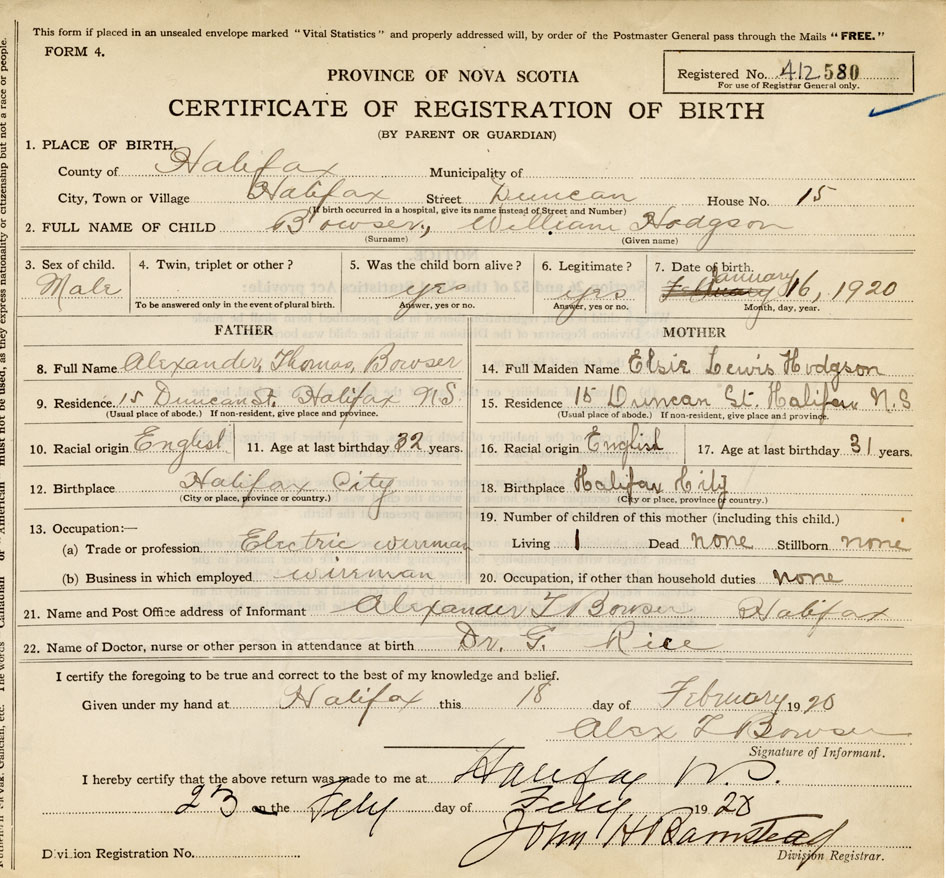 This form if placed in an unsealed envelope marked "Vital Statistics" and properly addressed will, by order of the Postmaster General pass through the Mails "FREE."
FORM 4.
Registered No. 412 580
For use of Registrar General only.
PROVINCE OF NOVA SCOTIA
CERTIFICATE OF REGISTRATION OF BIRTH
(BY PARENT OR GUARDIAN)
1. PLACE OF BIRTH.
County of Halifax Municipality of
City, Town or Village Halifax Street Duncan House No. 15
(If birth occurred in a hospital, give its name instead of Street and Number)
2. FULL NAME OF CHILD Bowser, William Hodgson
(Surname) (Given name)
3. Sex of child. 4. Twin, triplet or other? 5. Was the child born alive? 6. Legitimate? 7. Date of birth.
Male yes yes January 16, 1920
To be answered only in the event of plural birth. Answer, yes or no. Answer, yes or no. Month, day, year.
FATHER
8. Full Name Alexander, Thomas, Bowser
9. Residence 15 Duncan St. Halifax N.S.
(Usual place of abode.) If non-resident, give place and province.
10. Racial origin English 11. Age at last birthday 32 years.
12. Birthplace Halifax City
(City or place, province or country.)
13. Occupation:—
(a) Trade or profession Electric wireman
(b) Business in which employed wireman
MOTHER
14. Full Maiden Name Elsie Lewis Hodgson
15. Residence 15 Duncan St. Halifax N.S
(Usual place of abode.) If non-resident, give place and province.
16. Racial origin English 17. Age at last birthday 31 years.
18. Birthplace Halifax City
(City or place, province or country.)
19. Number of children of this mother (including this child.)
Living 1 Dead none Stillborn none
20. Occupation, if other than household duties none
21. Name and Post Office address of Informant Alexander T Bowser Halifax
22. Name of Doctor, nurse or other person in attendance at birth Dr. G. Rice
I certify the foregoing to be true and correct to the best of my knowledge and belief.
Given under my hand at Halifax this 18 day of February 1920
Alex T Bowser
Signature of Informant.
I hereby certify that the above return was made to me at Halifax N.S.
23 on the Feby day of Feby 19
John H Barnstead
Division Registrar.
Division Registration No.
must not be used, as they express nationality or citizenship but not a race or people.